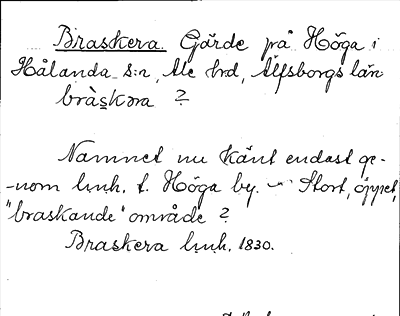 Braskera. Gärde på Höga i
Hålanda s:n, Ale hrd, Älfsborgs län
bràskəra ?
Namnet nu känt endast ge-
-nom l.u.h. t. Höga by. — Stort, öppet,
"braskande" område ?
Braskera l.u.h. 1830.